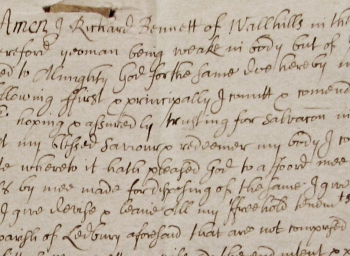 Amen I Richard Bennett of Wallhills in the
ereford yeoman being weake in body but of
ed to Almighty God for the same doe hereby m
llowing ffirst & principally I comitt & comend
hoping & assured by trusting for Salvacon in
my blessed Saviour & redeemer my body I co
whereto it hath pleased God to afford mee
by mee made for disposing of the same I give
I give devise & leave all my ffreehold tenem
parish of Ledbury aforesaid that are not comprised